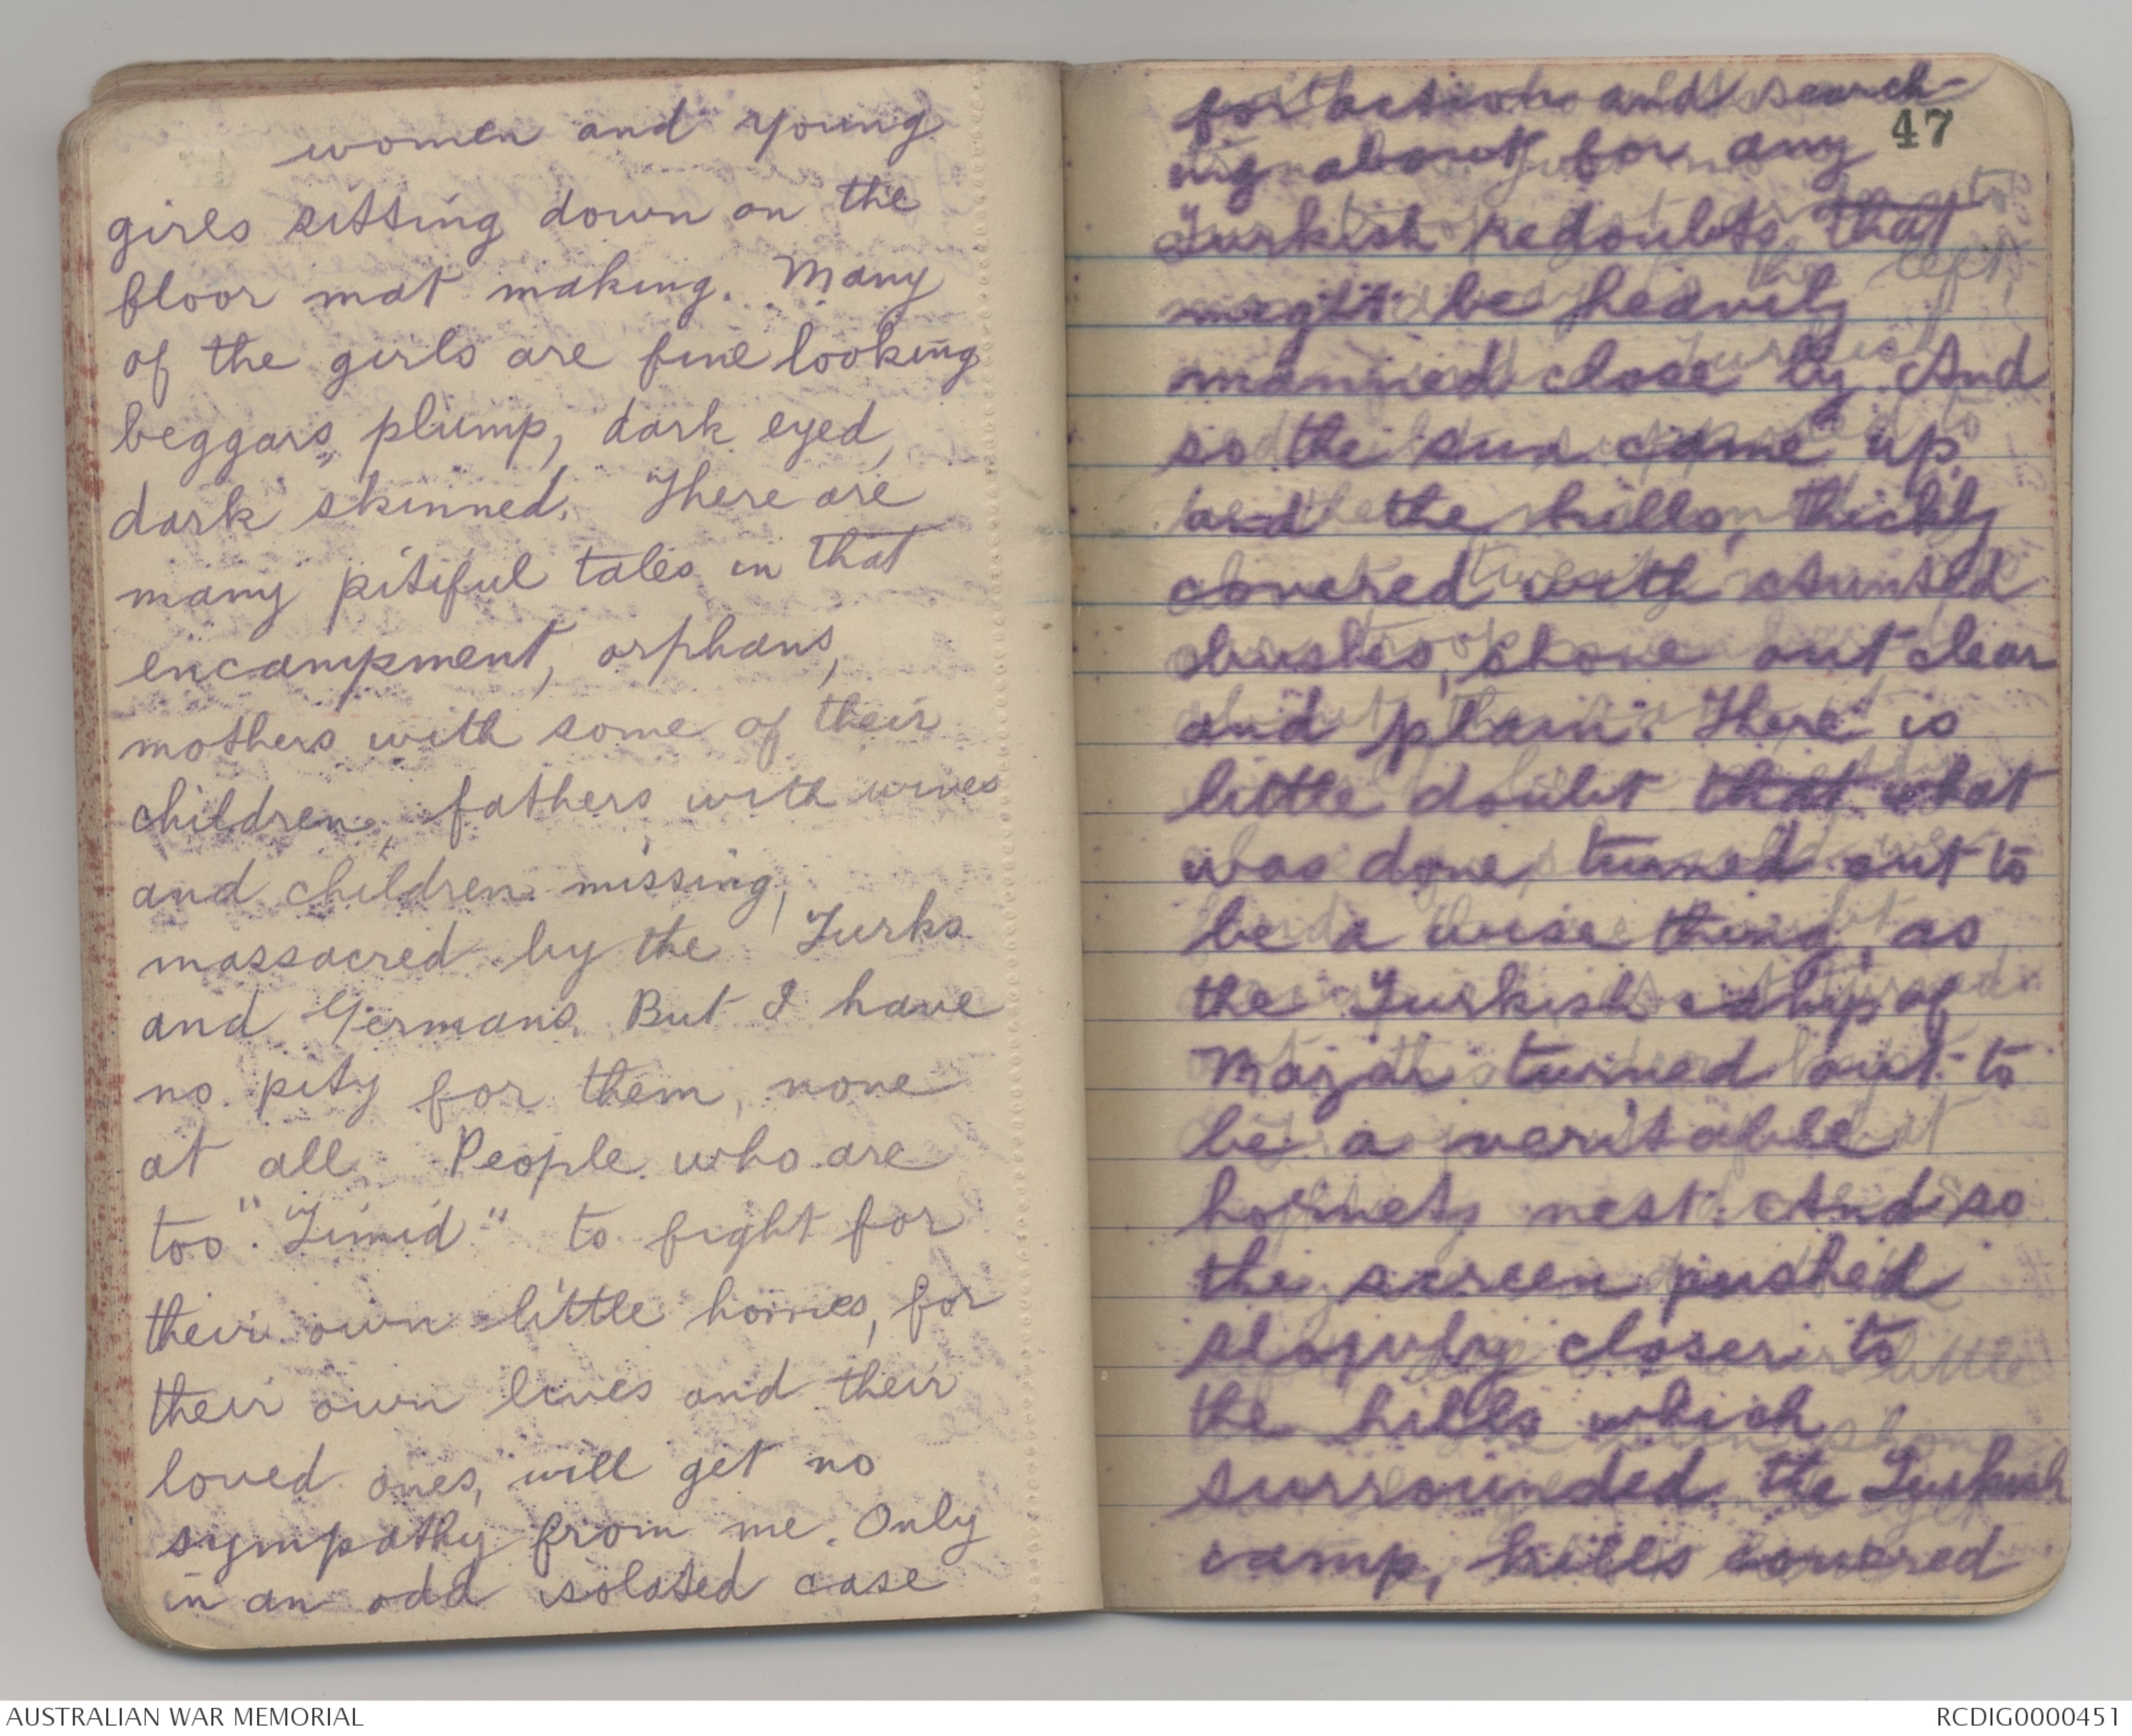 women and young
girls sitting down on the
floor mat making. Many
of the girls are fine looking
beggars, plump, dark eyed,
dark skinned. There are
many pitiful tales in that
encampment, orphans,
mothers with some of their
children, fathers with wives
and children missing,
massacred by the Turks
and Germans. But I have
no pity for them, none
at all. People who are
too "Timid" to fight for
their own little homes, for
their own lives and their
loved ones, will get no
sympathy from me. Only
in an odd isolated case
47
for action and search-
ing about for any
Turkish redoubts that
might be heavily
manned close by. And
so the sun came up
and the hills, thickly
covered with stunted
bushes, shone out clear
and plain. There is
little doubt that what
was done, turned out to
be a wise thing, as
the Turkish camp of
Mazar turned out to
be a veritable
hornets nest. And so
the screen pushed
slowly closer to
the hills which
surrounded the Turkish
camp, hills covered
AUSTRALIAN WAR MEMORIAL
RCDIG0000451